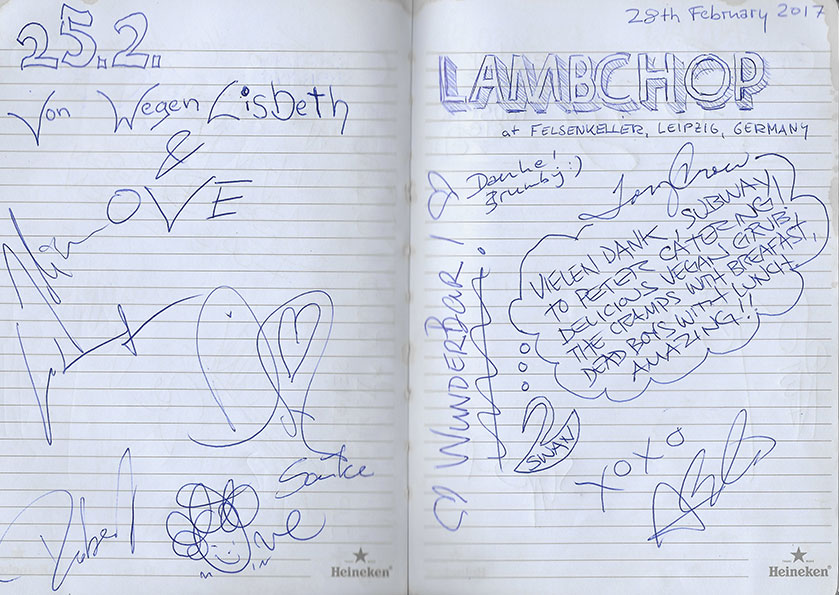 25.2.
Von Wegen Lisbeth
&
LOVE
Robert
Heineken
28th February 2017
LAMBCHOP
at FELSENKELLER, LEIPZIG, GERMANY
Danke!
Brumby :)
Tony Crow
VIELEN DANK, SUBWAY,
TO PETER CATERING!
DELICIOUS VEGAN GRUB!
THE CRAMPS WITH BREAFAST,
DEAD BOYS WITH LUNCH.
AMAZING!!
WUNDERBAR!
SWAN
XOXO
Heineken